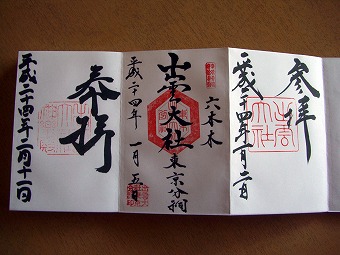 参拝
平成二十四年一月二日
六本木
出雲大社東京分祠
平成二十四年 一月 五日
奉拝
平成二十四年二月十一日